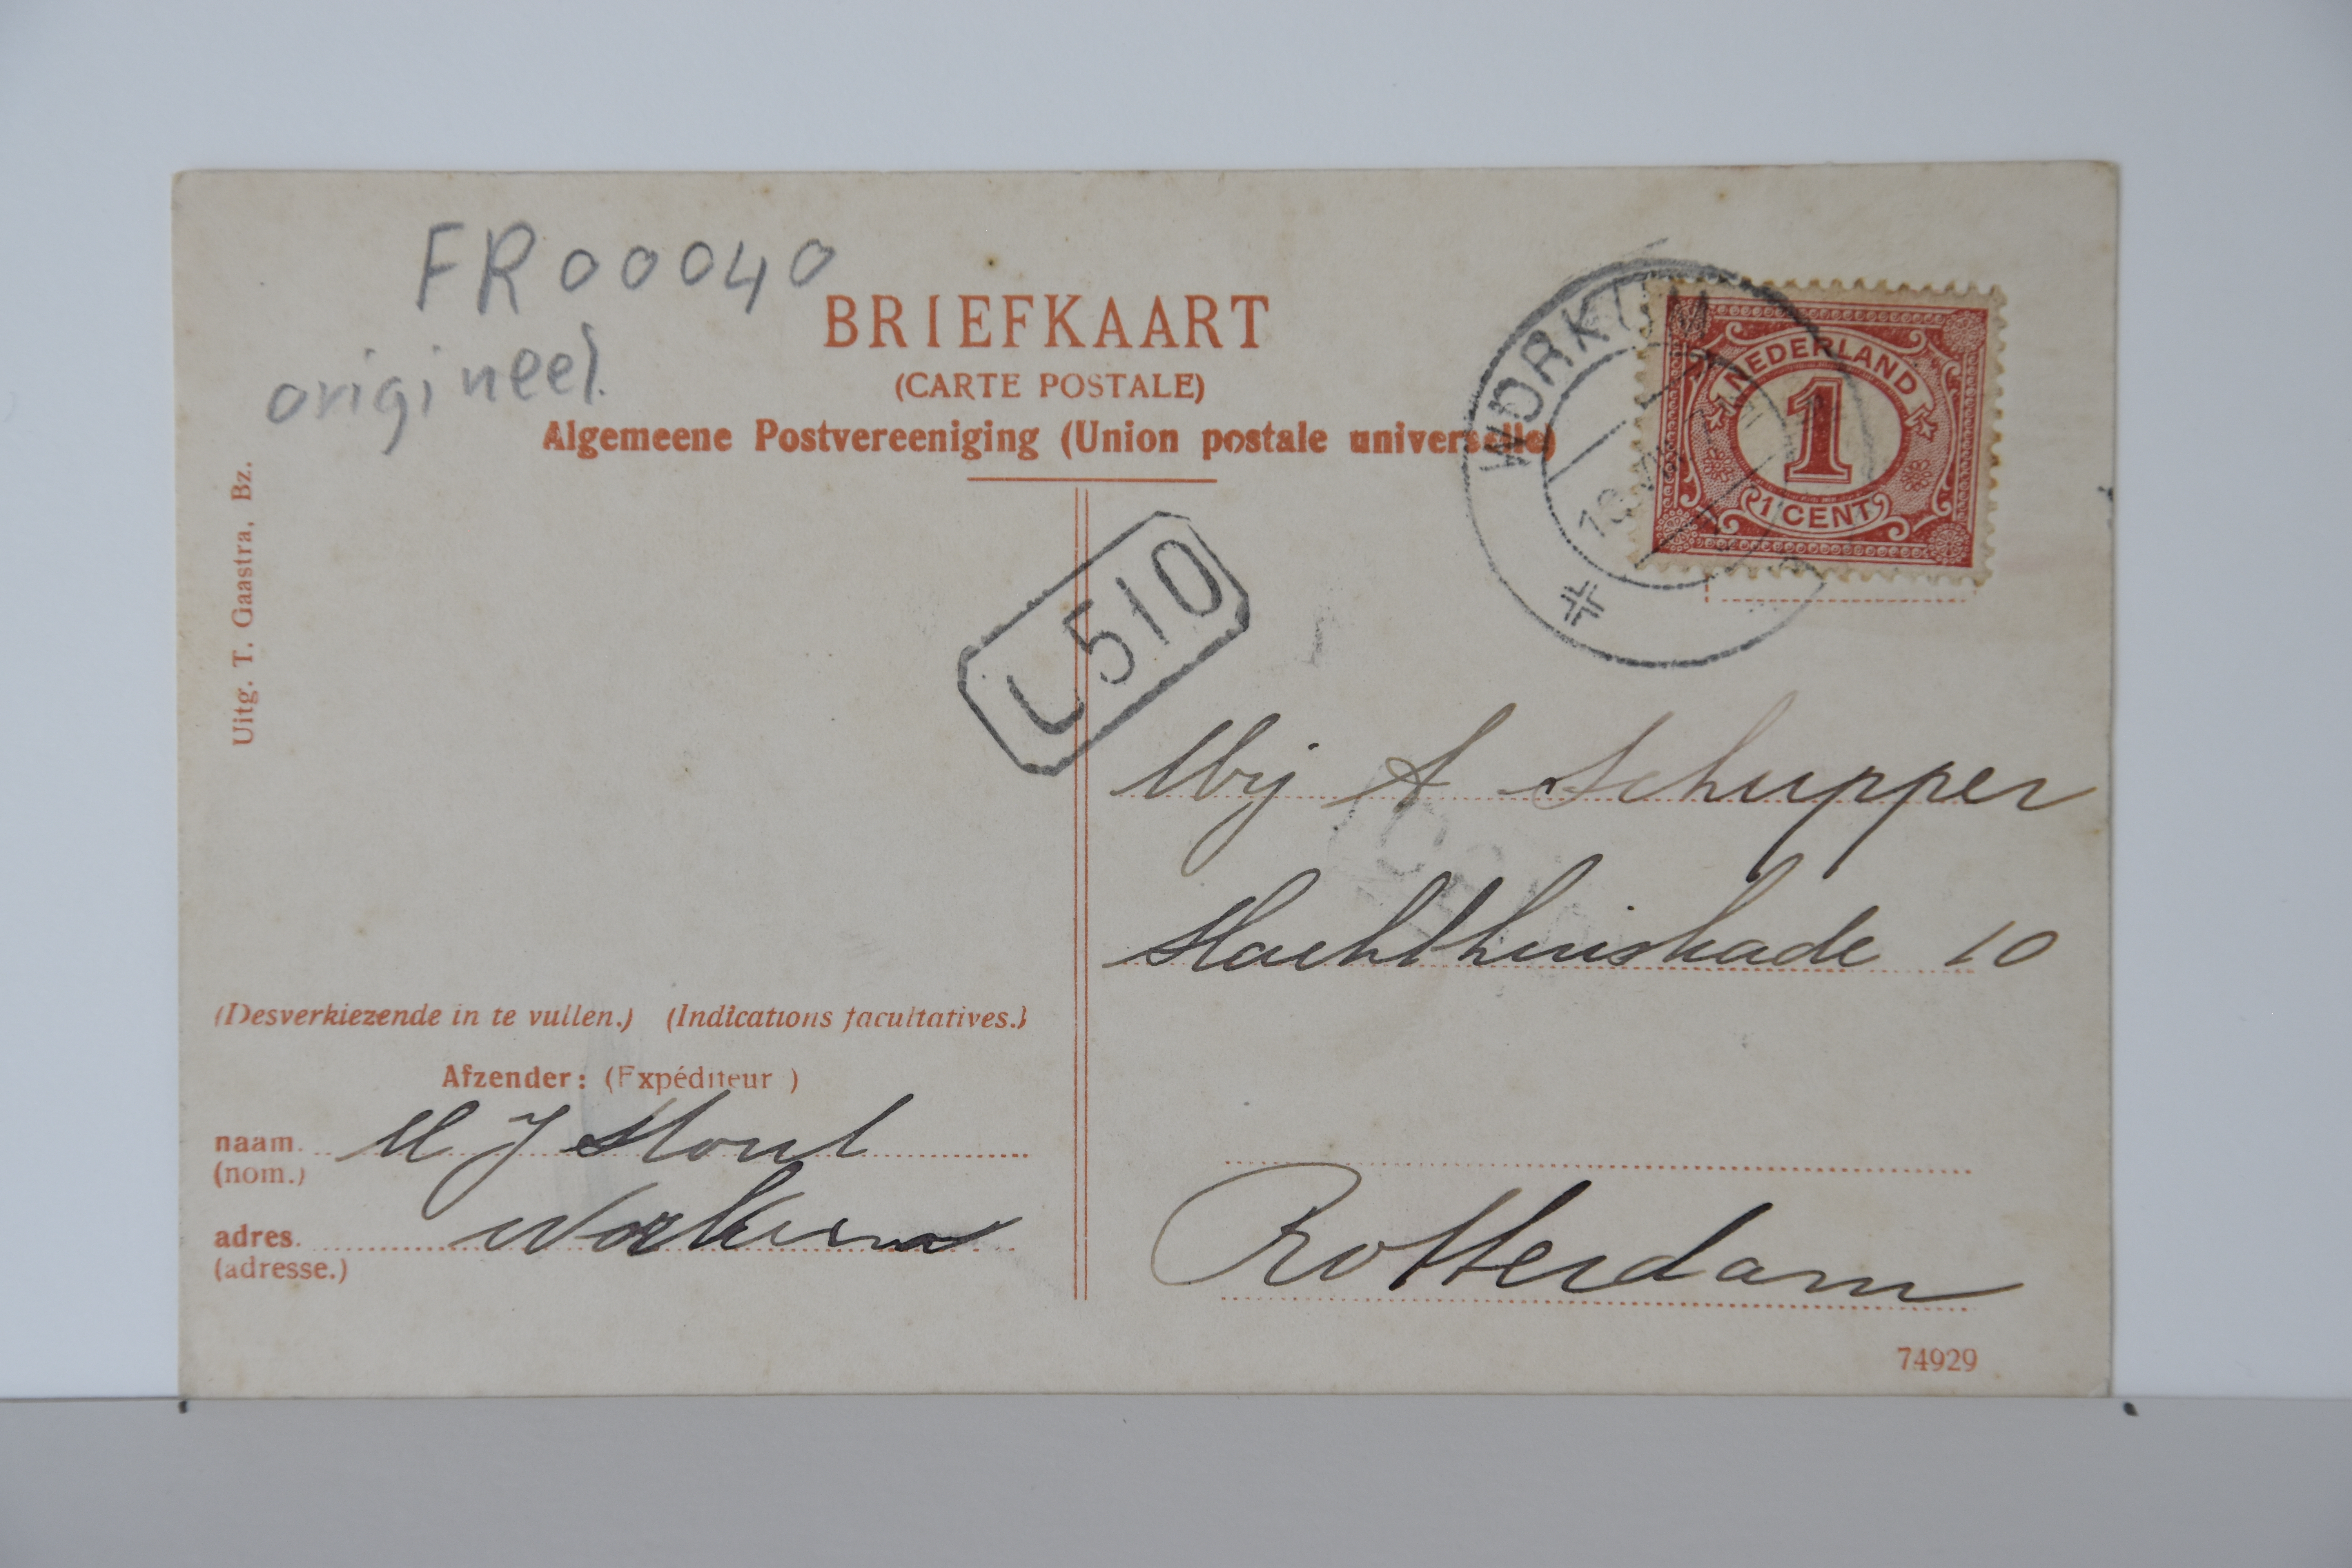 FR00040
origineel.
BRIEFKAART
(CARTE POSTALE)
Algemeene Postvereeniging (Union postale universelle)
WORKUM
NEDERLAND
1
1 CENT
Uitg. T. Gaastra, Bz.
L510
A Schupper
Slachthuiskade 10
Rotterdam
(Desverkiezende in te vullen.) (Indications facultatives.)
Afzender: (Expéditeur )
naam. M J
(nom.)
adres. Workum
(adresse.)
74929